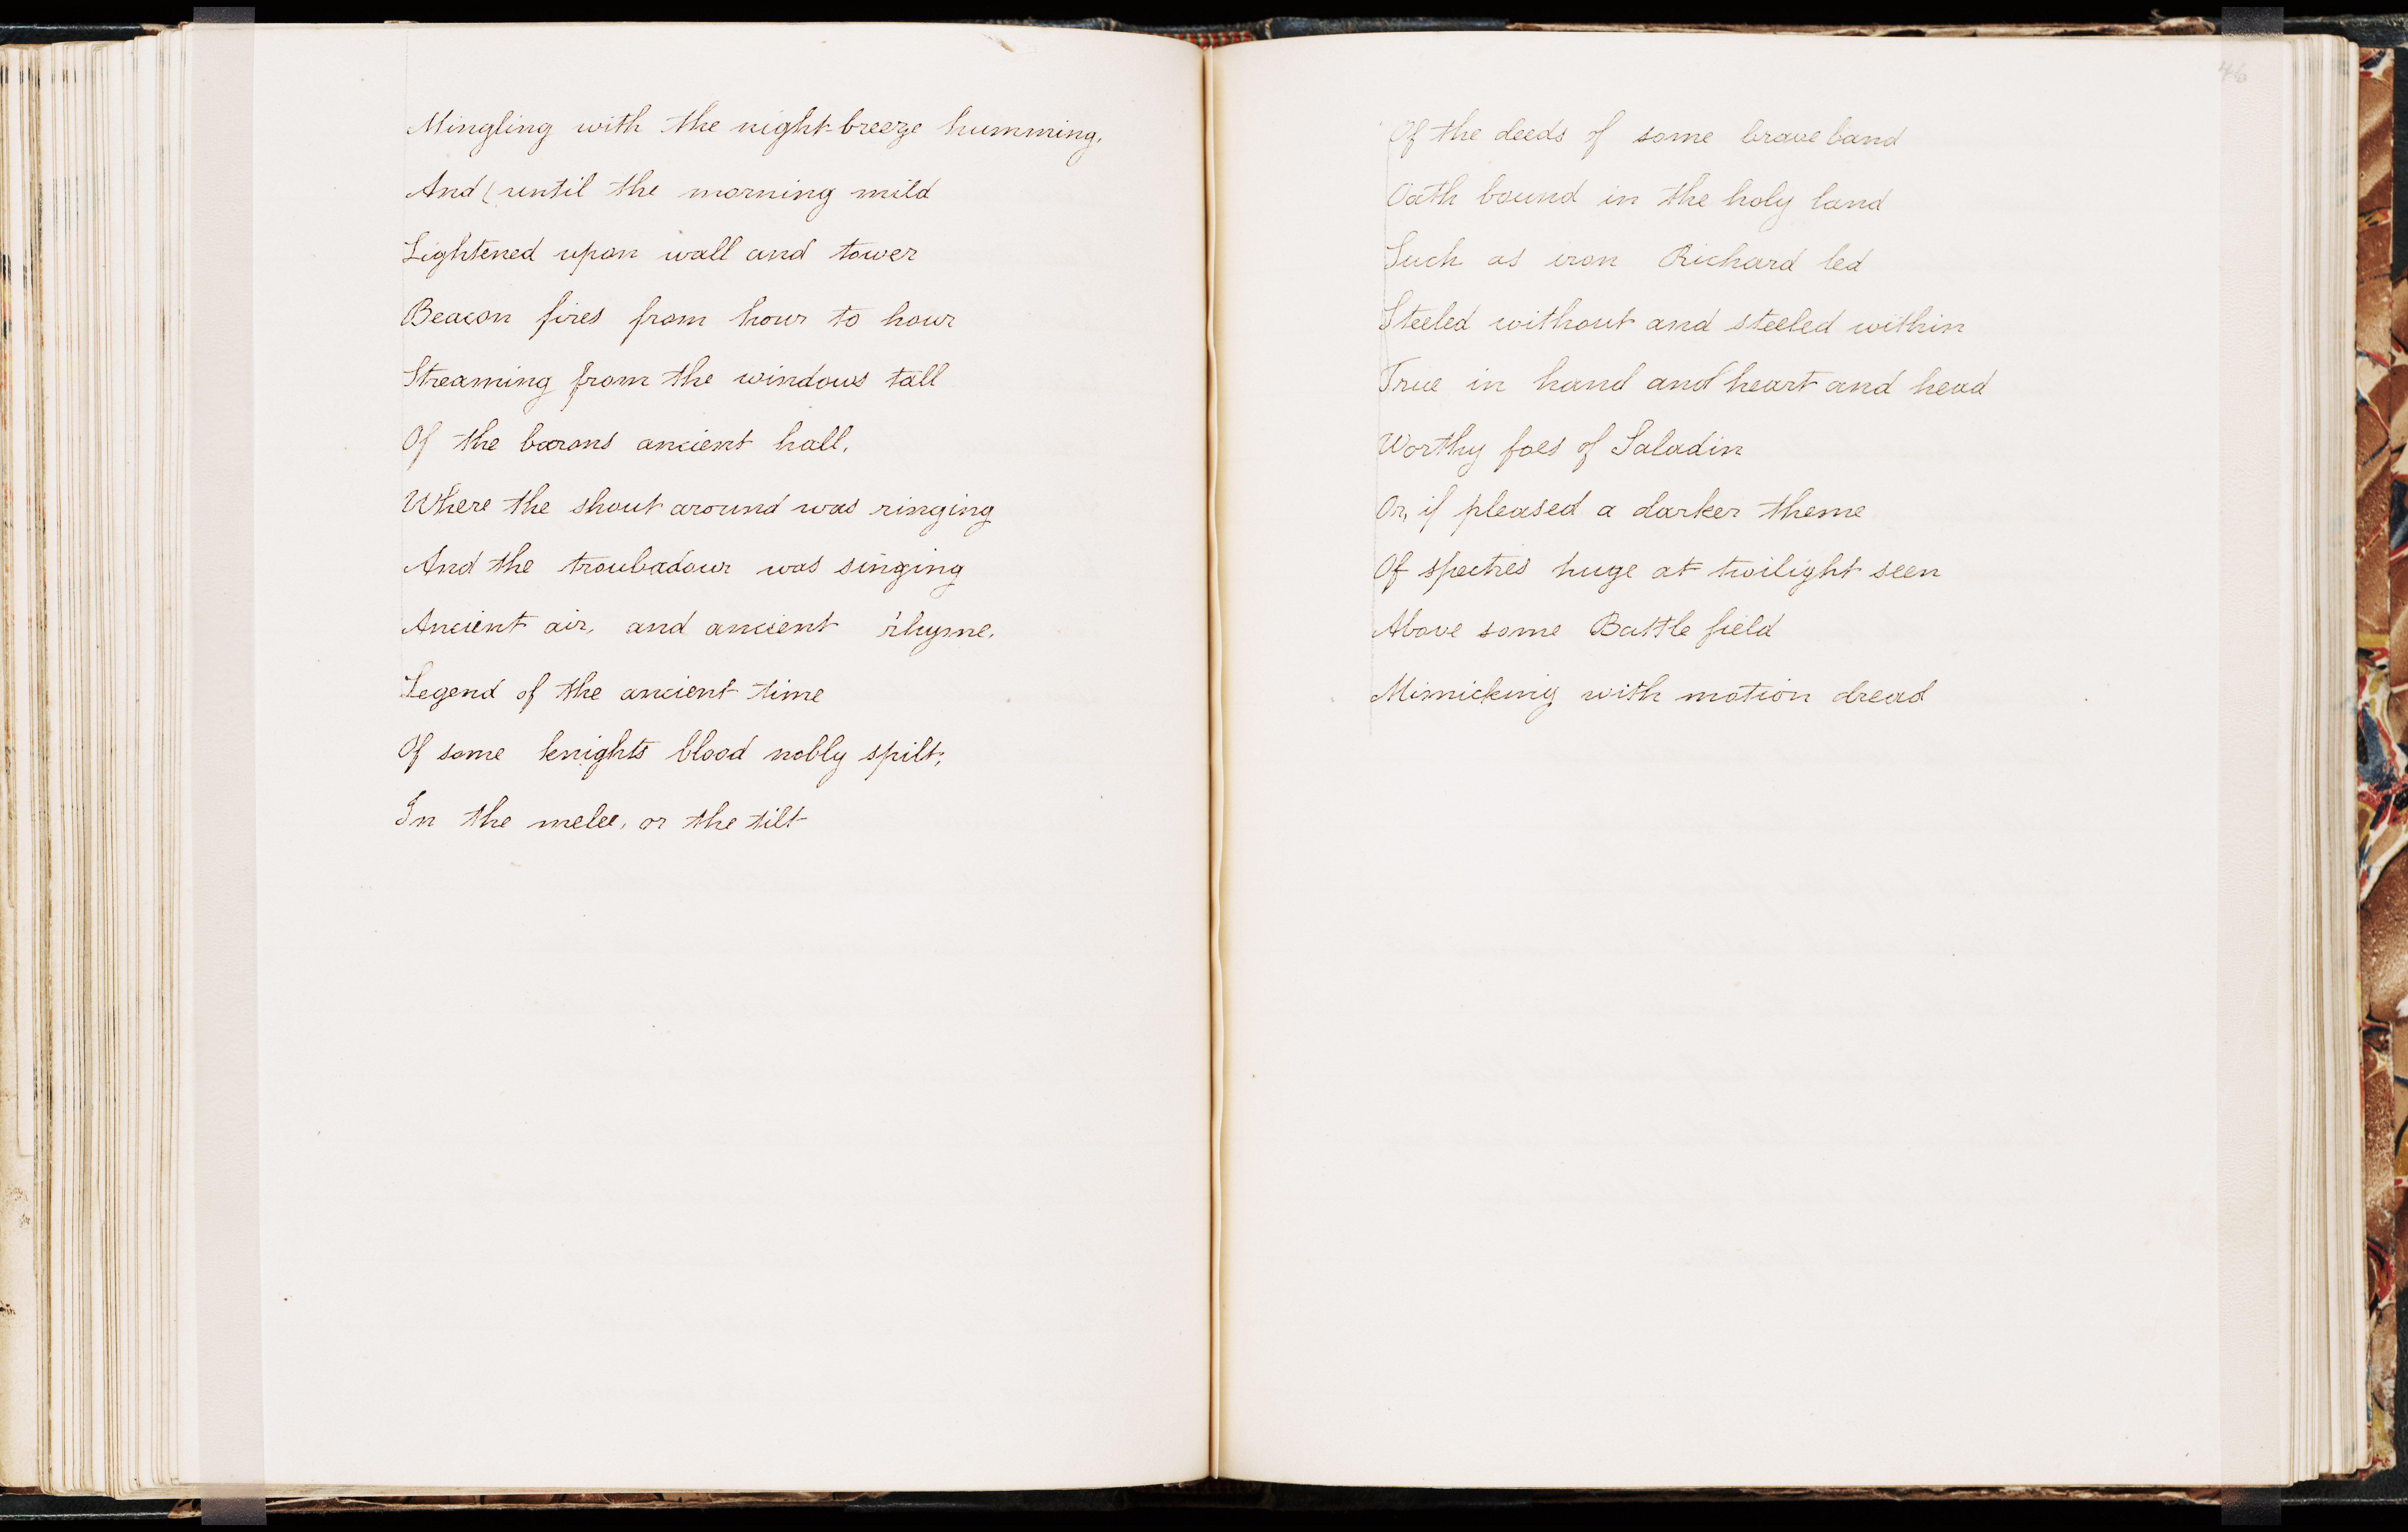 Mingling with the night-breeze humming,
And (until the morning mild
Lightened upon wall and tower
Beacon fires from hour to hour
Streaming from the windows tall
Of the barons ancient hall,
Where the shout around was ringing
And the troubadour was singing
Ancient air, and ancient rhyme,
Legend of the ancient time
Of some knights blood nobly spilt,
In the melee, or the tilt
46
Of the deeds of some brave band
Oath bound in the holy land
Such as iron Richard led
Steeled without and steeled within
True in hand and heart and head
Worthy foes of Saladin
Or, if pleased a darker theme
Of spectres huge at twilight seen
Above some Battle field
Mimicking with motion dread